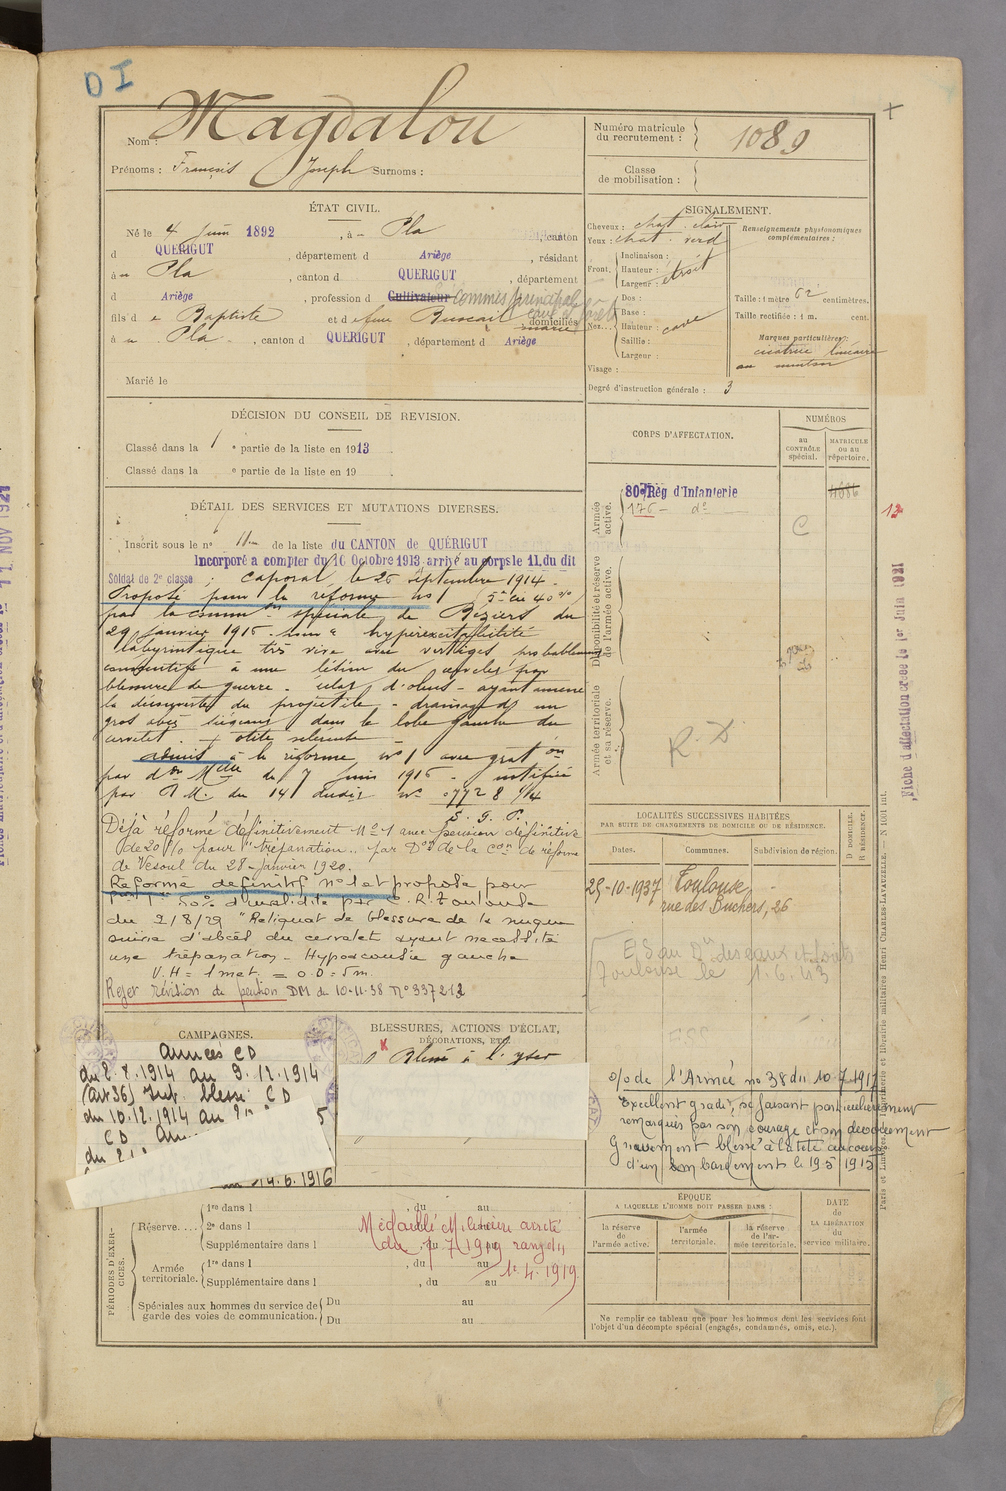 D I
Magdalou
Nom :
Prénoms : François Joseph Surnoms :
Numéro matricule
du recrutement :
1089
Classe
de mobilisation :
ÉTAT CIVIL.
Né le 4 Juin 1892, à Pla, canton
d QUERIGUT, département d Ariège, résidant
à Pla, canton d QUERIGUT, département
d Ariège, profession d Cultivateur Commis principal
fils d e Baptiste et d e feue Buscail domiciliés
à Pla, canton d QUERIGUT, département d Ariège
Marié le
SIGNALEMENT.
Cheveux : chat. clair
Yeux : chat. verd
Front.
Inclinaison :
Hauteur :
Largeur : étroit
Nez...
Dos :
Base :
Hauteur : cave
Saillie :
Largeur :
Visage :
Degré d'instruction générale : 3
Renseignements physionomiques
complémentaires :
Taille : 1 mètre 62 centimètres.
Taille rectifiée : 1 m. cent.
Marques particulières :
cicatrice linéaire
au menton
DÉCISION DU CONSEIL DE REVISION.
Classé dans la 1e partie de la liste en 1913
Classé dans la e partie de la liste en 19
DÉTAIL DES SERVICES ET MUTATIONS DIVERSES.
Inscrit sous le n° 11 de la liste du CANTON de QUÉRIGUT
Incorporé a compter du 10 Octobre 1913 arrivé au corps le 11 du dit
Soldat de 2e classe ; caporal le 26 septembre 1914.
Proposé pour la réforme no 1
par la comm on spéciale de Béziers du
29 Janvier 1916. pour hyperexcitabilité
labyrintique très vive avec vertiges probablement
consécutifs à une lésion du cervelet par
blessure de guerre - éclat d'obus - ayant amené
la découverte du projectile - drainage d'un
gros abcès siégeant dans le lobe gauche du
cervelet.
admis à la réforme n° 1 avec grat on
par d on Mlle du 7 Juin 1916 - notifiée
Déjà réformé définitivement N°1 avec pension définitive
de 20 % pour "trépanation" par Don de la Con de réforme
de Vesoul du 28 Janvier 1920.
Réformé définitif n° 1 et proposé pour
50% d'invalidité par C. R. Toulouse
du 2/8/29 "Reliquat de blessure de la nuque
suivie d'abcès du cervelet ayant nécessité
une trépanation - Hypoacousie gauche
V.H = 1 met. = O.D = 5 m.
Rejet révision de pension DM du 10-11-38 N° 337212
CORPS D'AFFECTATION.
NUMÉROS
au
CONTRÔLE
spécial.
MATRICULE
ou au
répertoire.
Armée
active.
80e Rég d'Infanterie
176 - do
4686
C
12
Disponibilité et réserve
de l'armée active.
Armée territoriale
et sa réserve.
R. D
Fiche d'affectation créée le 1er Juin 1921
LOCALITÉS SUCCESSIVES HABITÉES
PAR SUITE DE CHANGEMENTS DE DOMICILE OU DE RÉSIDENCE.
Dates.
Communes.
Subdivision de région.
D DOMICILE.
R RÉSIDENCE.
25-10-1937 Toulouse
rue des Buchers, 26
Toulouse le 1.6.43
CAMPAGNES.
Années CD
du 2.8.1914 au 9.12.1914
(art 36) Int. blessé CD
du 10.12.1914 au
14.6.1916
BLESSURES, ACTIONS D'ÉCLAT,
DÉCORATIONS, ETC.
Blessé à l'yser
o/o de l'Armée no 38 du 10-7-1917
Excellent gradé, se faisant particulièrement
remarquer par son courage et son dévouement
Gravement blessé à la tête au cours
d'un bombardement le 19.5.1915
PÉRIODES D'EXERCICES.
Réserve....
1re dans l , du au
2e dans l
Supplémentaire dans l
Armée
territoriale.
1re dans l , du au
Supplémentaire dans l , du au
Spéciales aux hommes du service de
garde des voies de communication.
Du au
Du au
Médaillé Militaire arrêté
du 7 1919 rang du
1. 4. 1919
ÉPOQUE
A LAQUELLE L'HOMME DOIT PASSER DANS :
la réserve
de
l'armée active.
l'armée
territoriale.
la réserve
de l'ar-
mée territoriale.
DATE
de
LA LIBÉRATION
du
service militaire.
Ne remplir ce tableau que pour les hommes dont les services font
l'objet d'un décompte spécial (engagés, condamnés, omis, etc.).